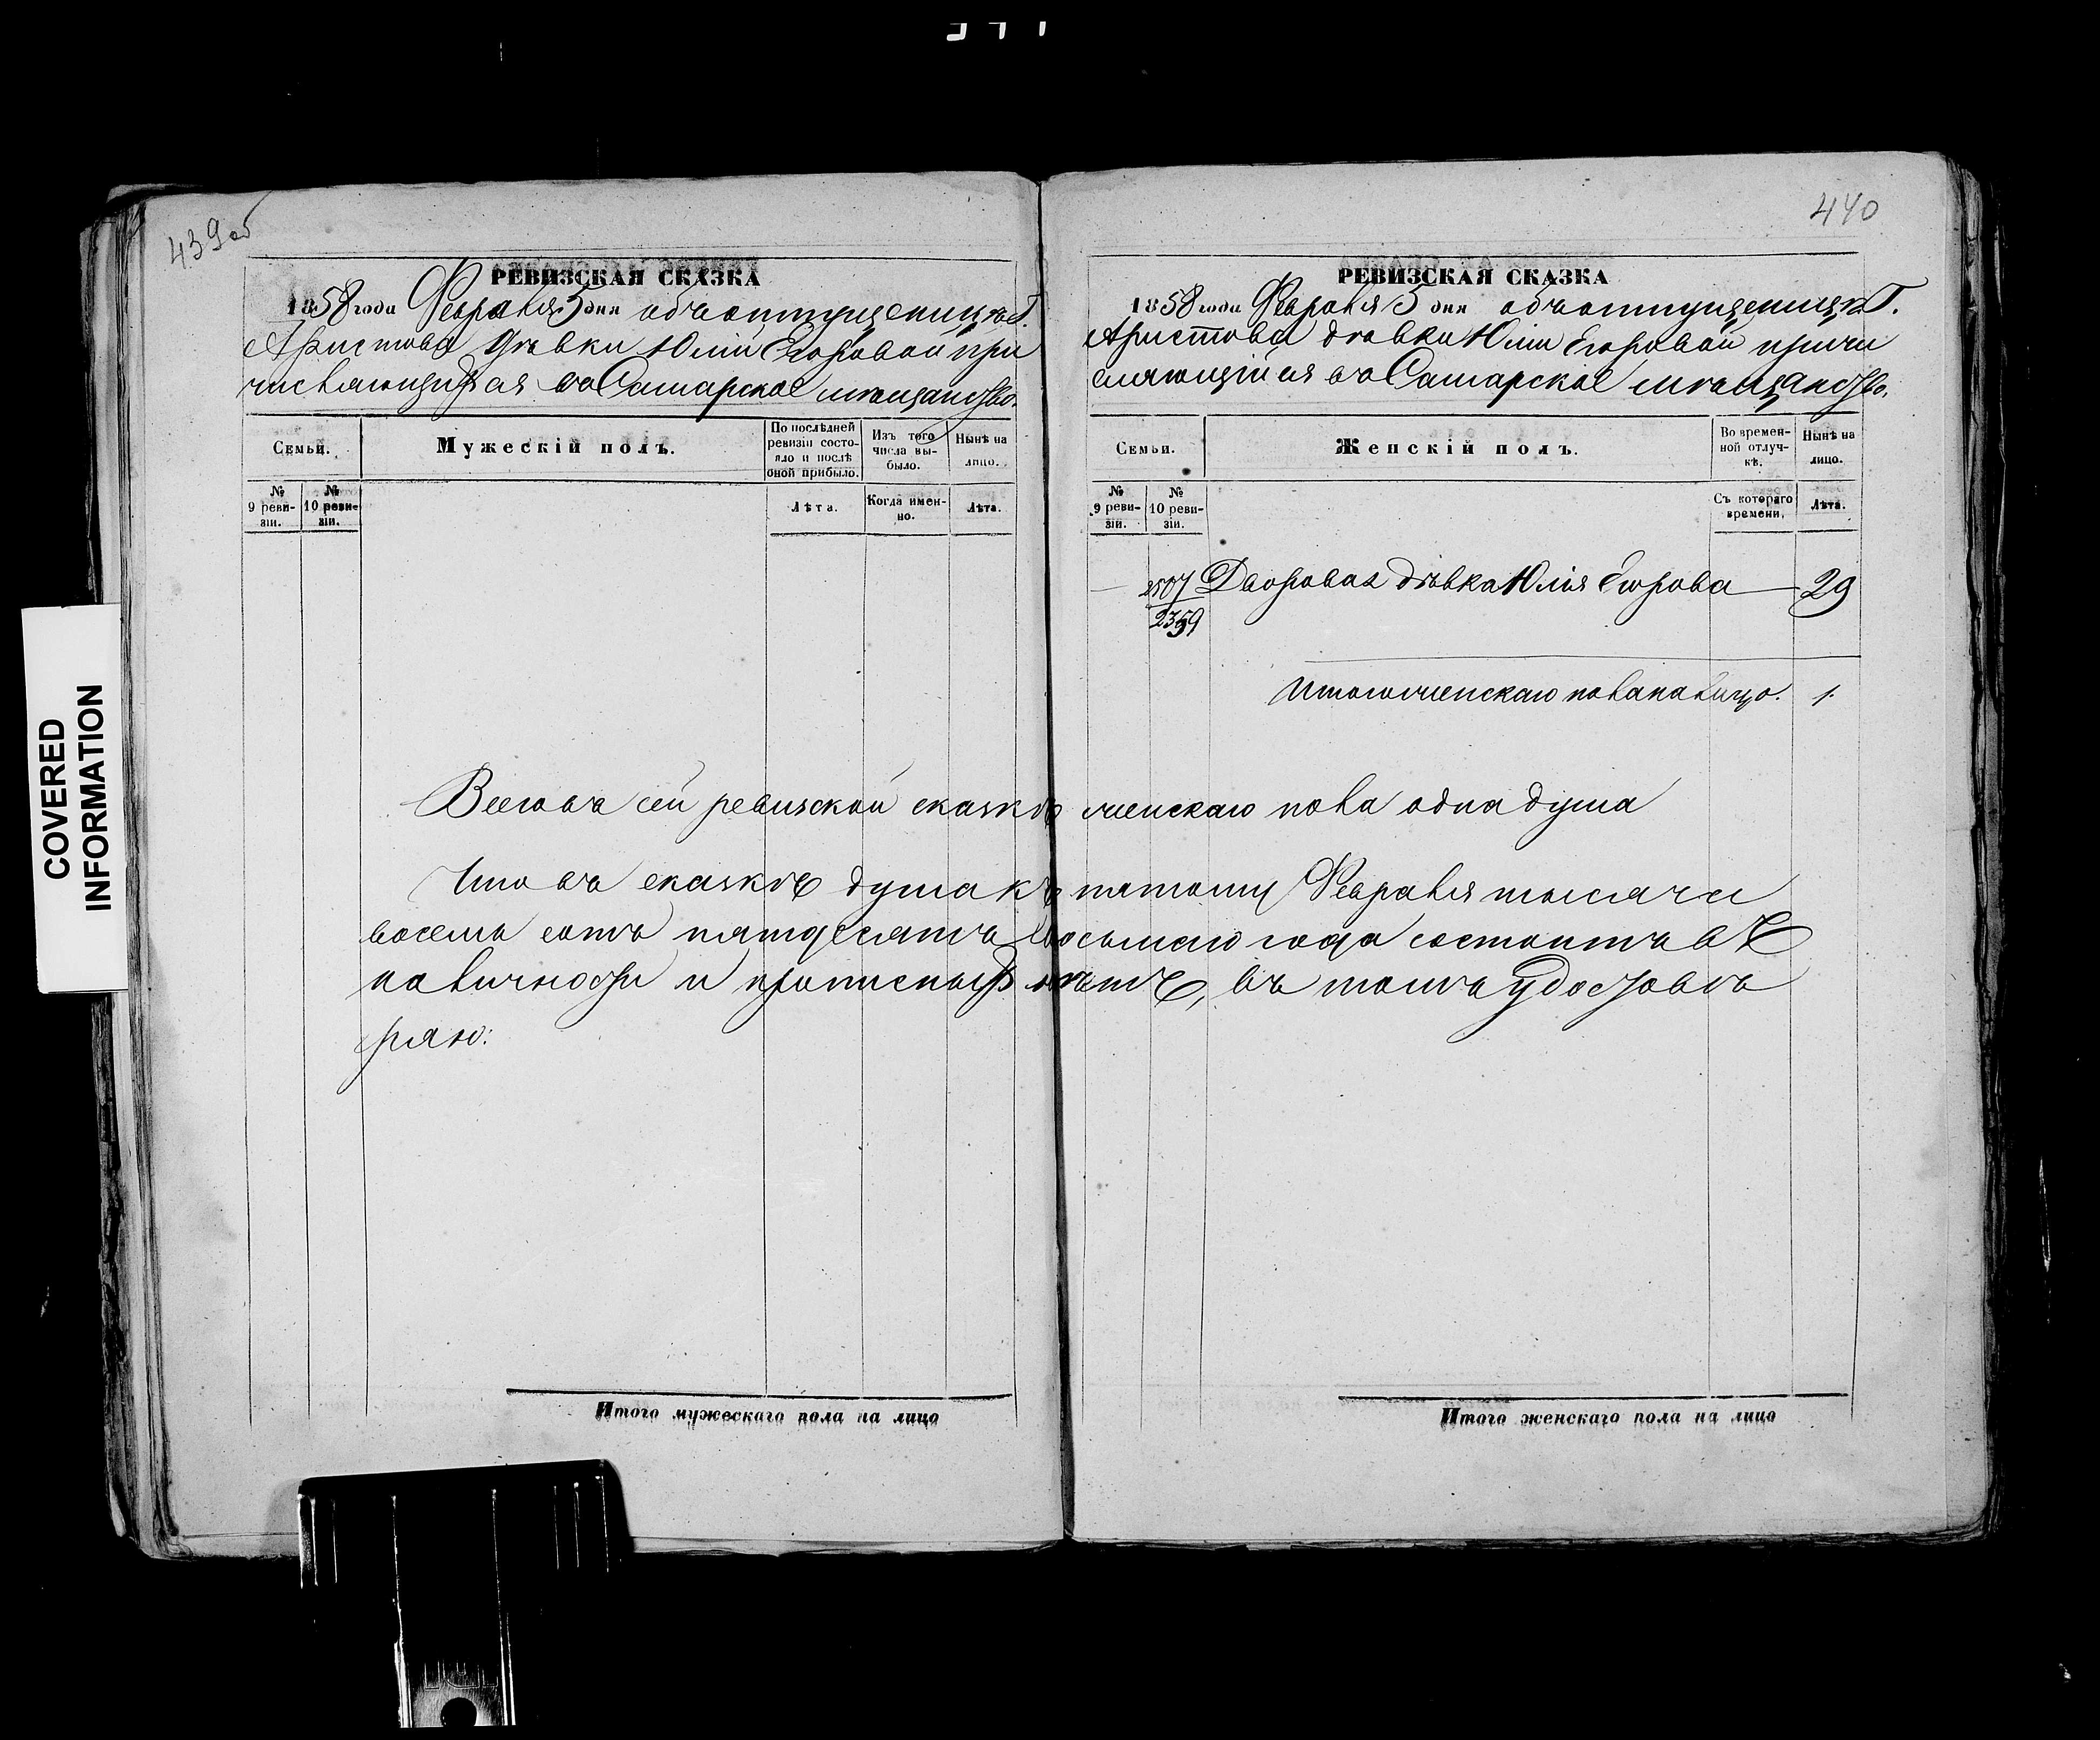 439об
РЕВИЗСКАЯ СКАЗКА
1858 года Февраля 5 дня объ отпущеницѣ Г.
Аристова дѣвки Юліи Егоровой при
числяющейся въ Самарское мѣщанство.
Семьи.
Мужескій полъ.
По послѣдней ревизіи состояло и послѣ оной прибыло.
Изъ того числа выбыло.
Нынѣ на лицо.
№ 9 ревизіи.
№ 10 ревизіи.
Лѣта.
Когда именно.
Лѣта.
Итого мужескаго пола на лицо
440
РЕВИЗСКАЯ СКАЗКА
1858 года Февраля 5 дня объ отпущеницѣ Г.
Аристова дѣвки Юліи Егоровой причи
сляющійся въ Самарское мѣщанство.
Семьи.
Женскій полъ.
Во временной отлучкѣ.
Нынѣ на лицо.
№ 9 ревизіи.
№ 10 ревизіи.
Съ котораго времени.
Лѣта.
— 2507 Дворовая дѣвка Юлія Егорова — 29
2359
Итого женскаго пола на лицо. 1.
Всего въ сей ревизской сказкѣ женскаго пола одна душа
Что въ сказкѣ душа къ пятому Февраля тысяча
восемь сотъ пятдесятъ восьмаго года состоитъ въ
наличности и прописныхъ нѣтъ, въ томъ удостовѣ
ряю:
Итого женскаго пола на лицо
COVERED
INFORMATION